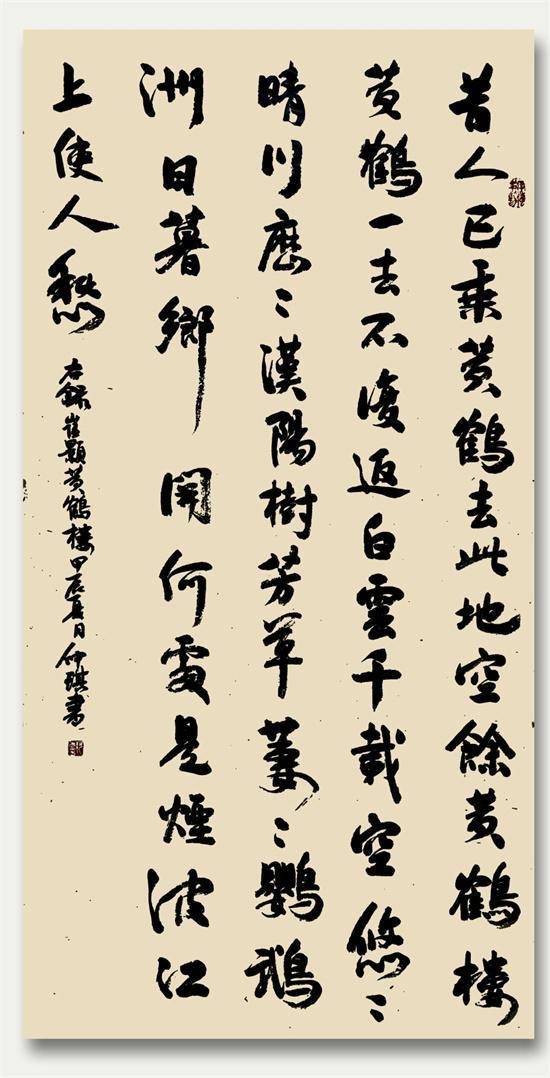 昔人已乘黄鶴去此地空餘黄鶴樓
黄鶴一去不復返白雲千載空悠〻
晴川歷〻漢陽樹芳草萋〻鸚鵡
洲日暮鄉関何處是煙波江
上使人愁
右錄崔顥黄鶴樓甲辰夏日仲琪書